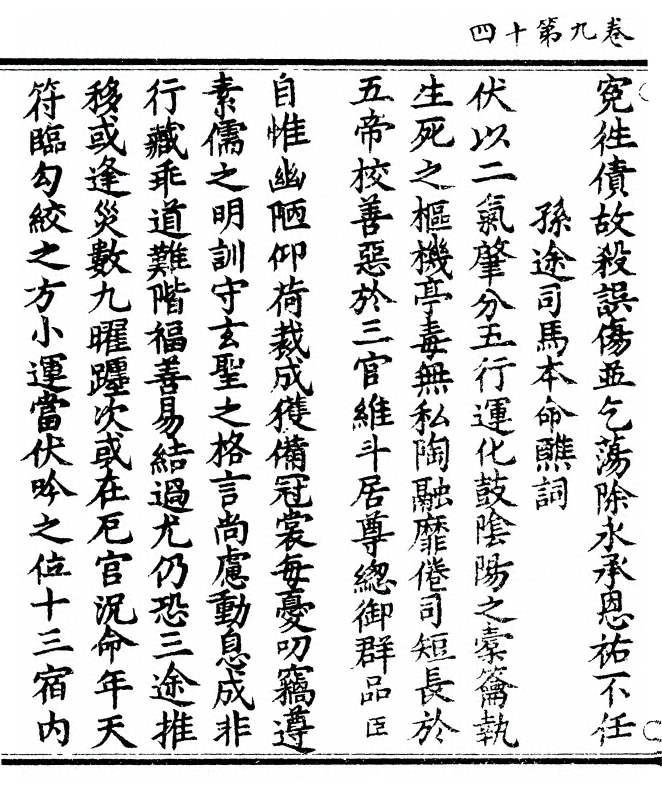 卷九第十四
冤徃債故殺誤傷並乞蕩除永承恩祐不任
孫途司馬本命醮詞
伏以二氣肇分五行運化鼓陰陽之橐籥執
生死之樞機亭毒無私陶融靡倦司短長於
五帝校善惡於三官維斗居尊總御群品臣
自惟幽陋仰荷裁成獲備冠裳每憂叨竊遵
素儒之明訓守玄聖之格言尚慮動息成非
行藏乖道難階福善易結過尤仍恐三途推
移或逢災數九曜躔次或在厄宮況命年天
符臨勾絞之方小運當伏吟之位十三宿內